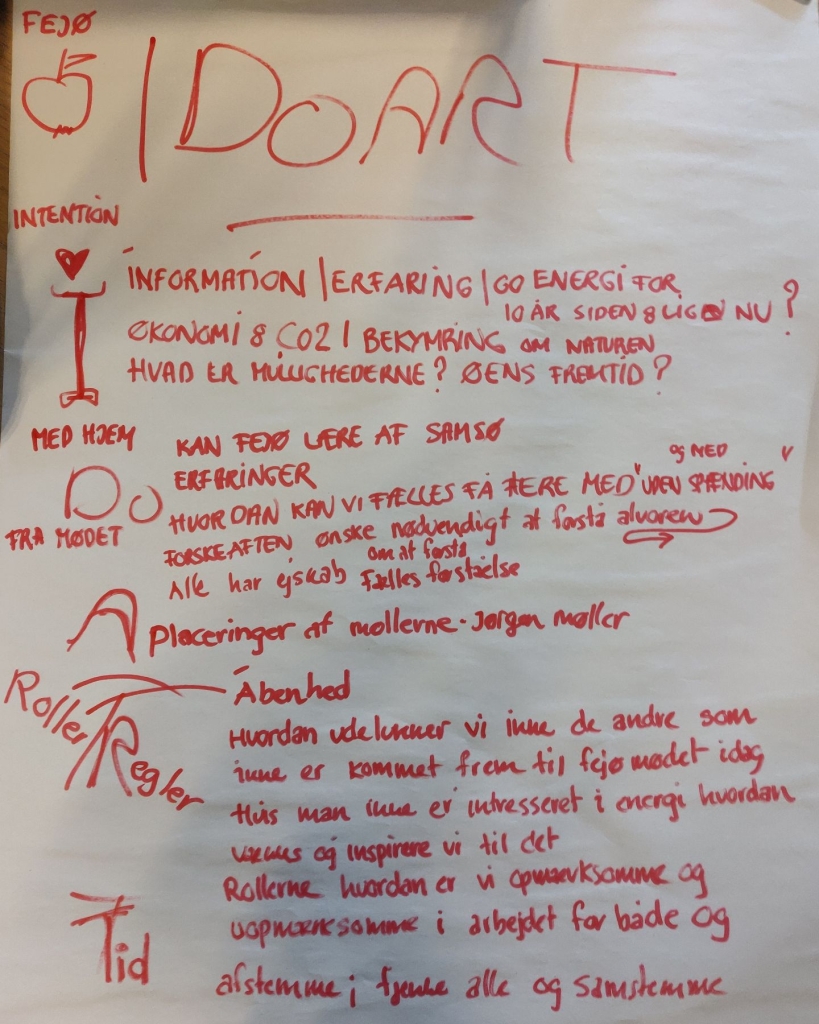 FEJØ
IDOART
INTENTION
INFORMATION | ERFARING | GO ENERGI FOR
10 ÅR SIDEN & LIGE NU ?
ØKONOMI & CO2 | BEKYMRING OM NATUREN
HVAD ER MULIGHEDERNE? ØENS FREMTID?
MED HJEM
DO
FRA MØDET
KAN FEJØ LÆRE AF SAMSØ
ERFARINGER
og NED
HVORDAN KAN VI FÆLLES FÅ FLERE MED UDEN SPÆNDING
FORSKEAFTEN ønske nødvendigt at forstå alvoren
om at forstå
Alle har ejskab Fælles forståelse
A
Placeringer af møllerne · Jørgen Møller
Roller
Regler
Åbenhed
Hvordan udelukker vi ikke de andre som
ikke er kommet frem til fejø mødet idag
Hvis man ikke er intresseret i energi hvordan
vækkes og inspirere vi til det
Rollerne hvordan er vi opmærksomme og
uopmærksomme i arbejdet for både og
Tid
afstemme alle og samstemme